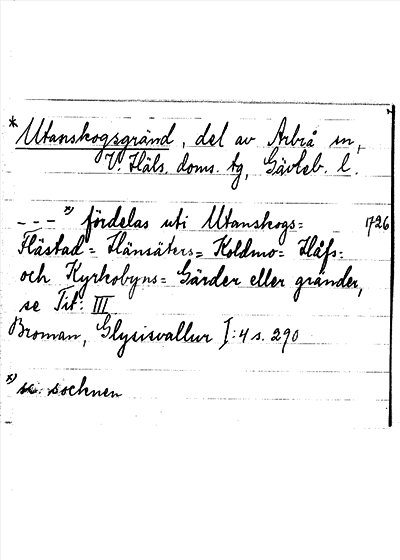 * Utanskogsgränd, del av Arbrå sn,
V. Häls. doms. tg, Gävleb. l.
- - - *) fördelas uti Utanskogs= 1726
Flästad= Hänsäters= Koldmo= Håfs=
och Kyrkobyns= Gärder eller gränder,
se Tit: III
Broman, Glysisvallur I:4 s. 290
*) sc. socknen